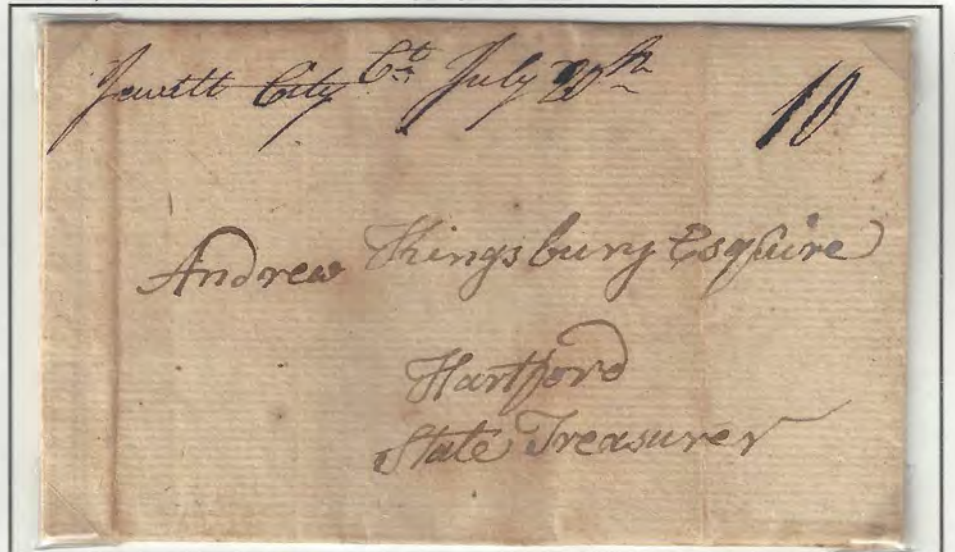 Jewett City Ct July 20th 10
Andrew Kingsbury Esquire
Hartford
State Treasurer